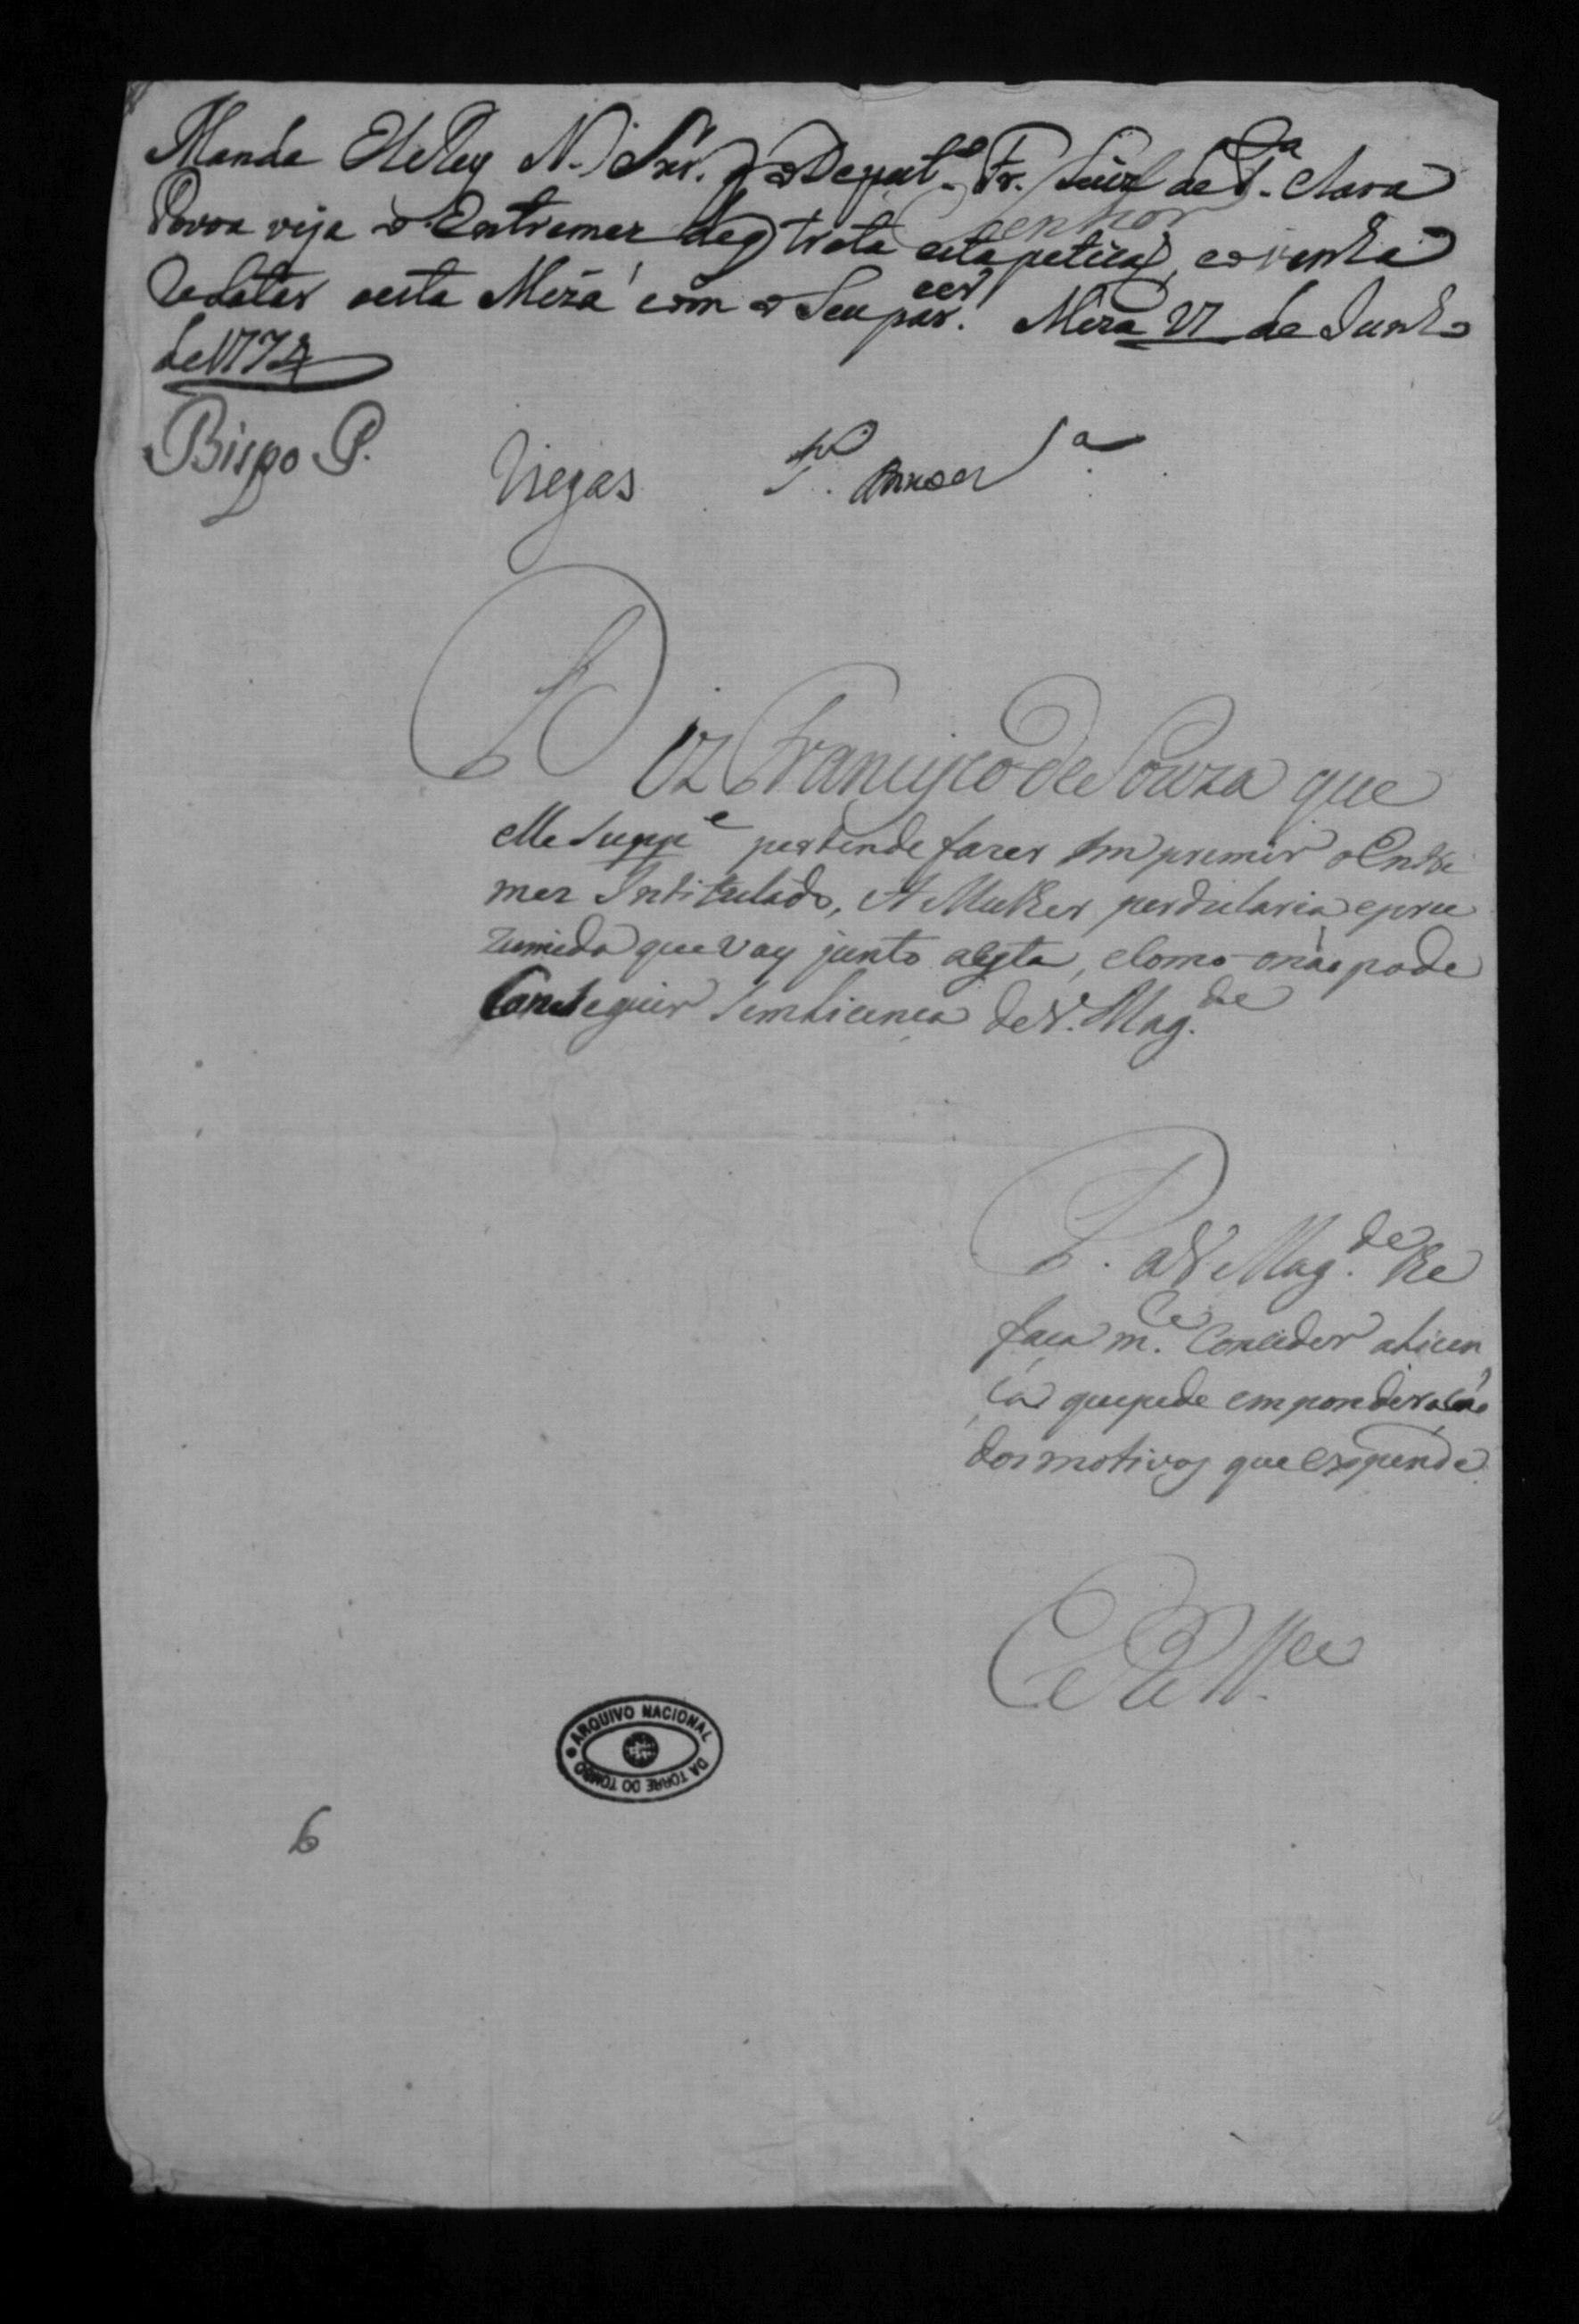 Manda El Rey N. Snr. q o Deput.do Fr. Luiz de S.ta Clara
Povoa veja o Entremez de q trata esta petição, e o venha
Relatar nesta Meza com o Seu parecer. Meza 27 de Junho
de 1774
Senhor
Bispo P. Viegas
Diz Francisco de Souza que
elle Supp.e pertende fazer Imprimir o Entre
mez Intitulado, A Mulher perdularia e pre
zumida que vay junto a esta, e Como o não pode
Conseguir sem Licença de V. Mag.de
P. a V. Mag.de lhe
faça m.ce Conceder a Licen
ça que pede em ponderação
dos motivos que expende
E R M.ce
ARQUIVO NACIONAL DA TORRE DO TOMBO
6